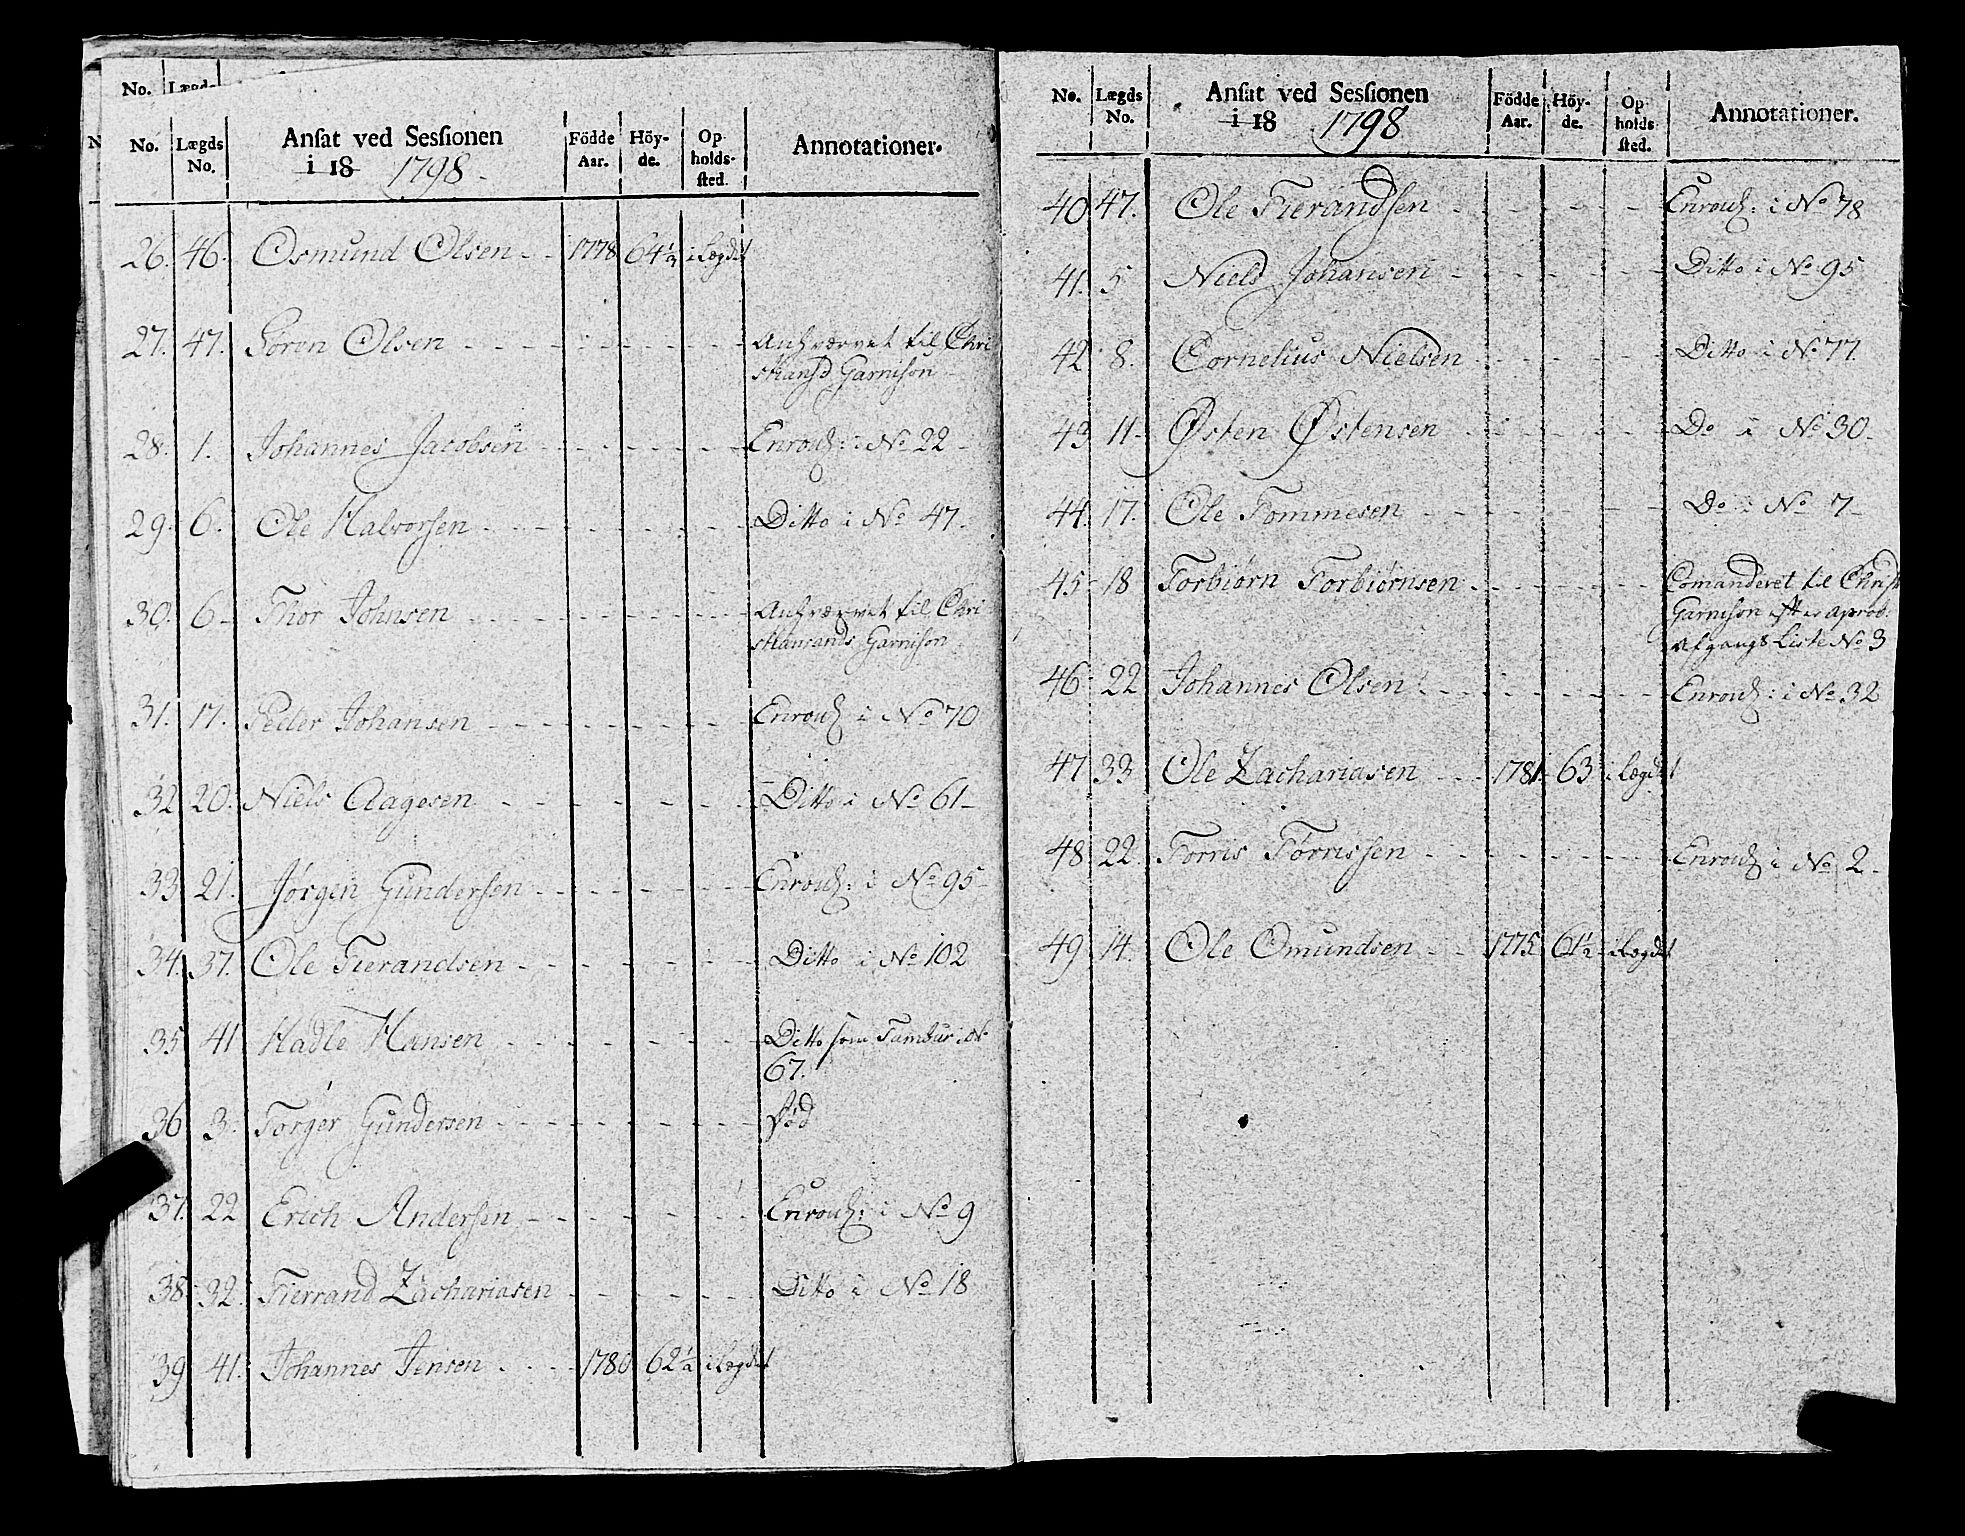 No. Lægds
No. Lægds No. Ansat ved Sessionen i 18 1798. Födde Aar. Höyde. Opholdssted. Annotationer.
26. 46. Osmund Olsen - - 1778 64½ i Lægdet
27. 47. Sören Olsen - - - - Anhværvet til Chri
stiansd Garnison -
28. 1. Johannes Jacobsen - - - - Enroul: i No 22 -
29. 6. Ole Halvorsen - - - - Ditto i No 47.
30. 6 - Thor Johnsen - - - - Anhværvet til Chri
stiansands Garnison
31. 17. Peder Johansen - - - - Enroul i No 70
32 20. Niels Aagesen - - - - Ditto i No 61 -
33 21. Jørgen Gundersen - - - - Enroul: i No 95 -
34. 37. Ole Fierandsen - - - - Ditto i No 102
35 41 Hadle Hansen - - - - Ditto som Tambur i No
67.
36 3. Torger Gundersen - - - - Död
37. 22 Erich Andersen - - - - Enroul: i No 9
38 - 32. Fierrand Zachariasen - - - - Ditto i No 18
39 41. Johannes Jensen - - - - 1780 62½ i Lægdet
No. Lægds No. Ansat ved Sessionen i 18 1798 Födde Aar. Höyde. Opholdssted. Annotationer.
40 47. Ole Fierandsen - - - - Enroul: i No 78
41. 5 Niels Johansen - - - - Ditto i No 95
42 8. Cornelius Nielsen - - - - Ditto i No 77
43 11 - Østen Østensen - - - - Do i No 30 -
44. 17. Ole Tommesen - - - - Do i No 7 -
45 - 18 Torbiørn Torbiørnsen - - - - Comanderet til Christ
Garnison efter aprob:
Afgangs Liste No 3
46 - 22 Johannes Olsen - - - - Enroul: i No 32
47 33 Ole Zachariasen - - - 1781. 63 i Lægdet
48 22. Torris Tørrissen - - - - Enroul i No 2 -
49 14. Ole Omundsen - - 1775 61½ i Lægdet